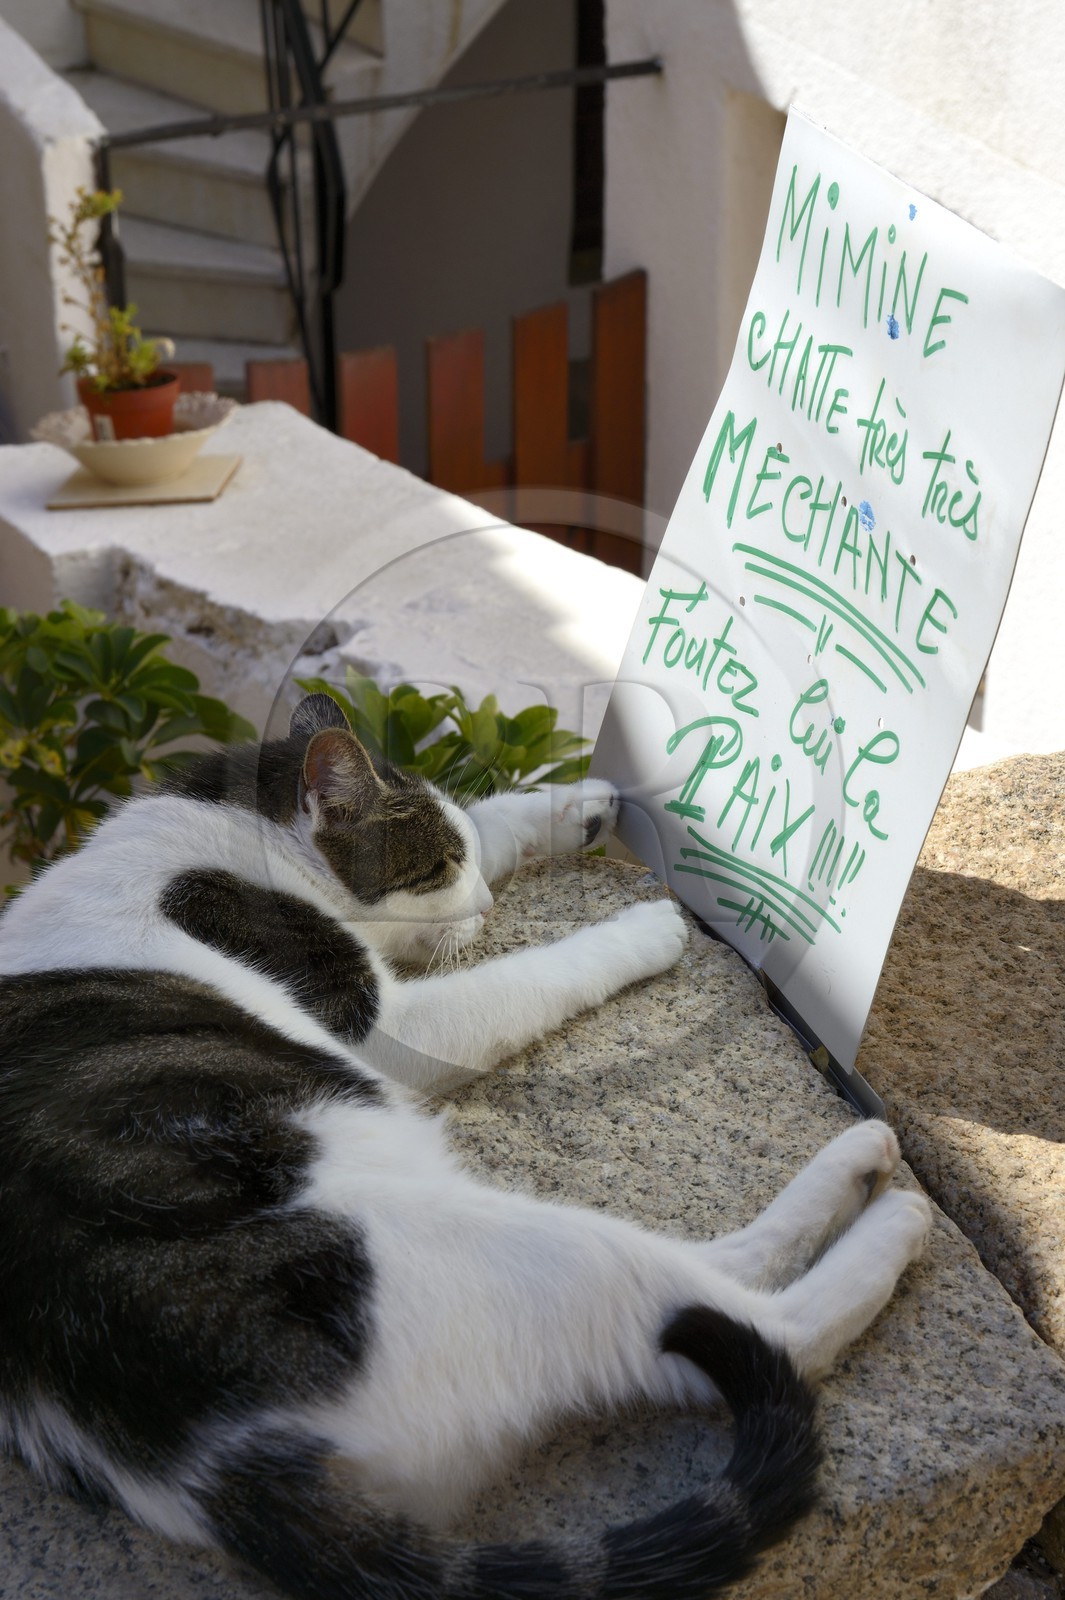 MiMiNE
CHATTE très très
MÉCHANTE
Foutez lui la
PAiX !!!!